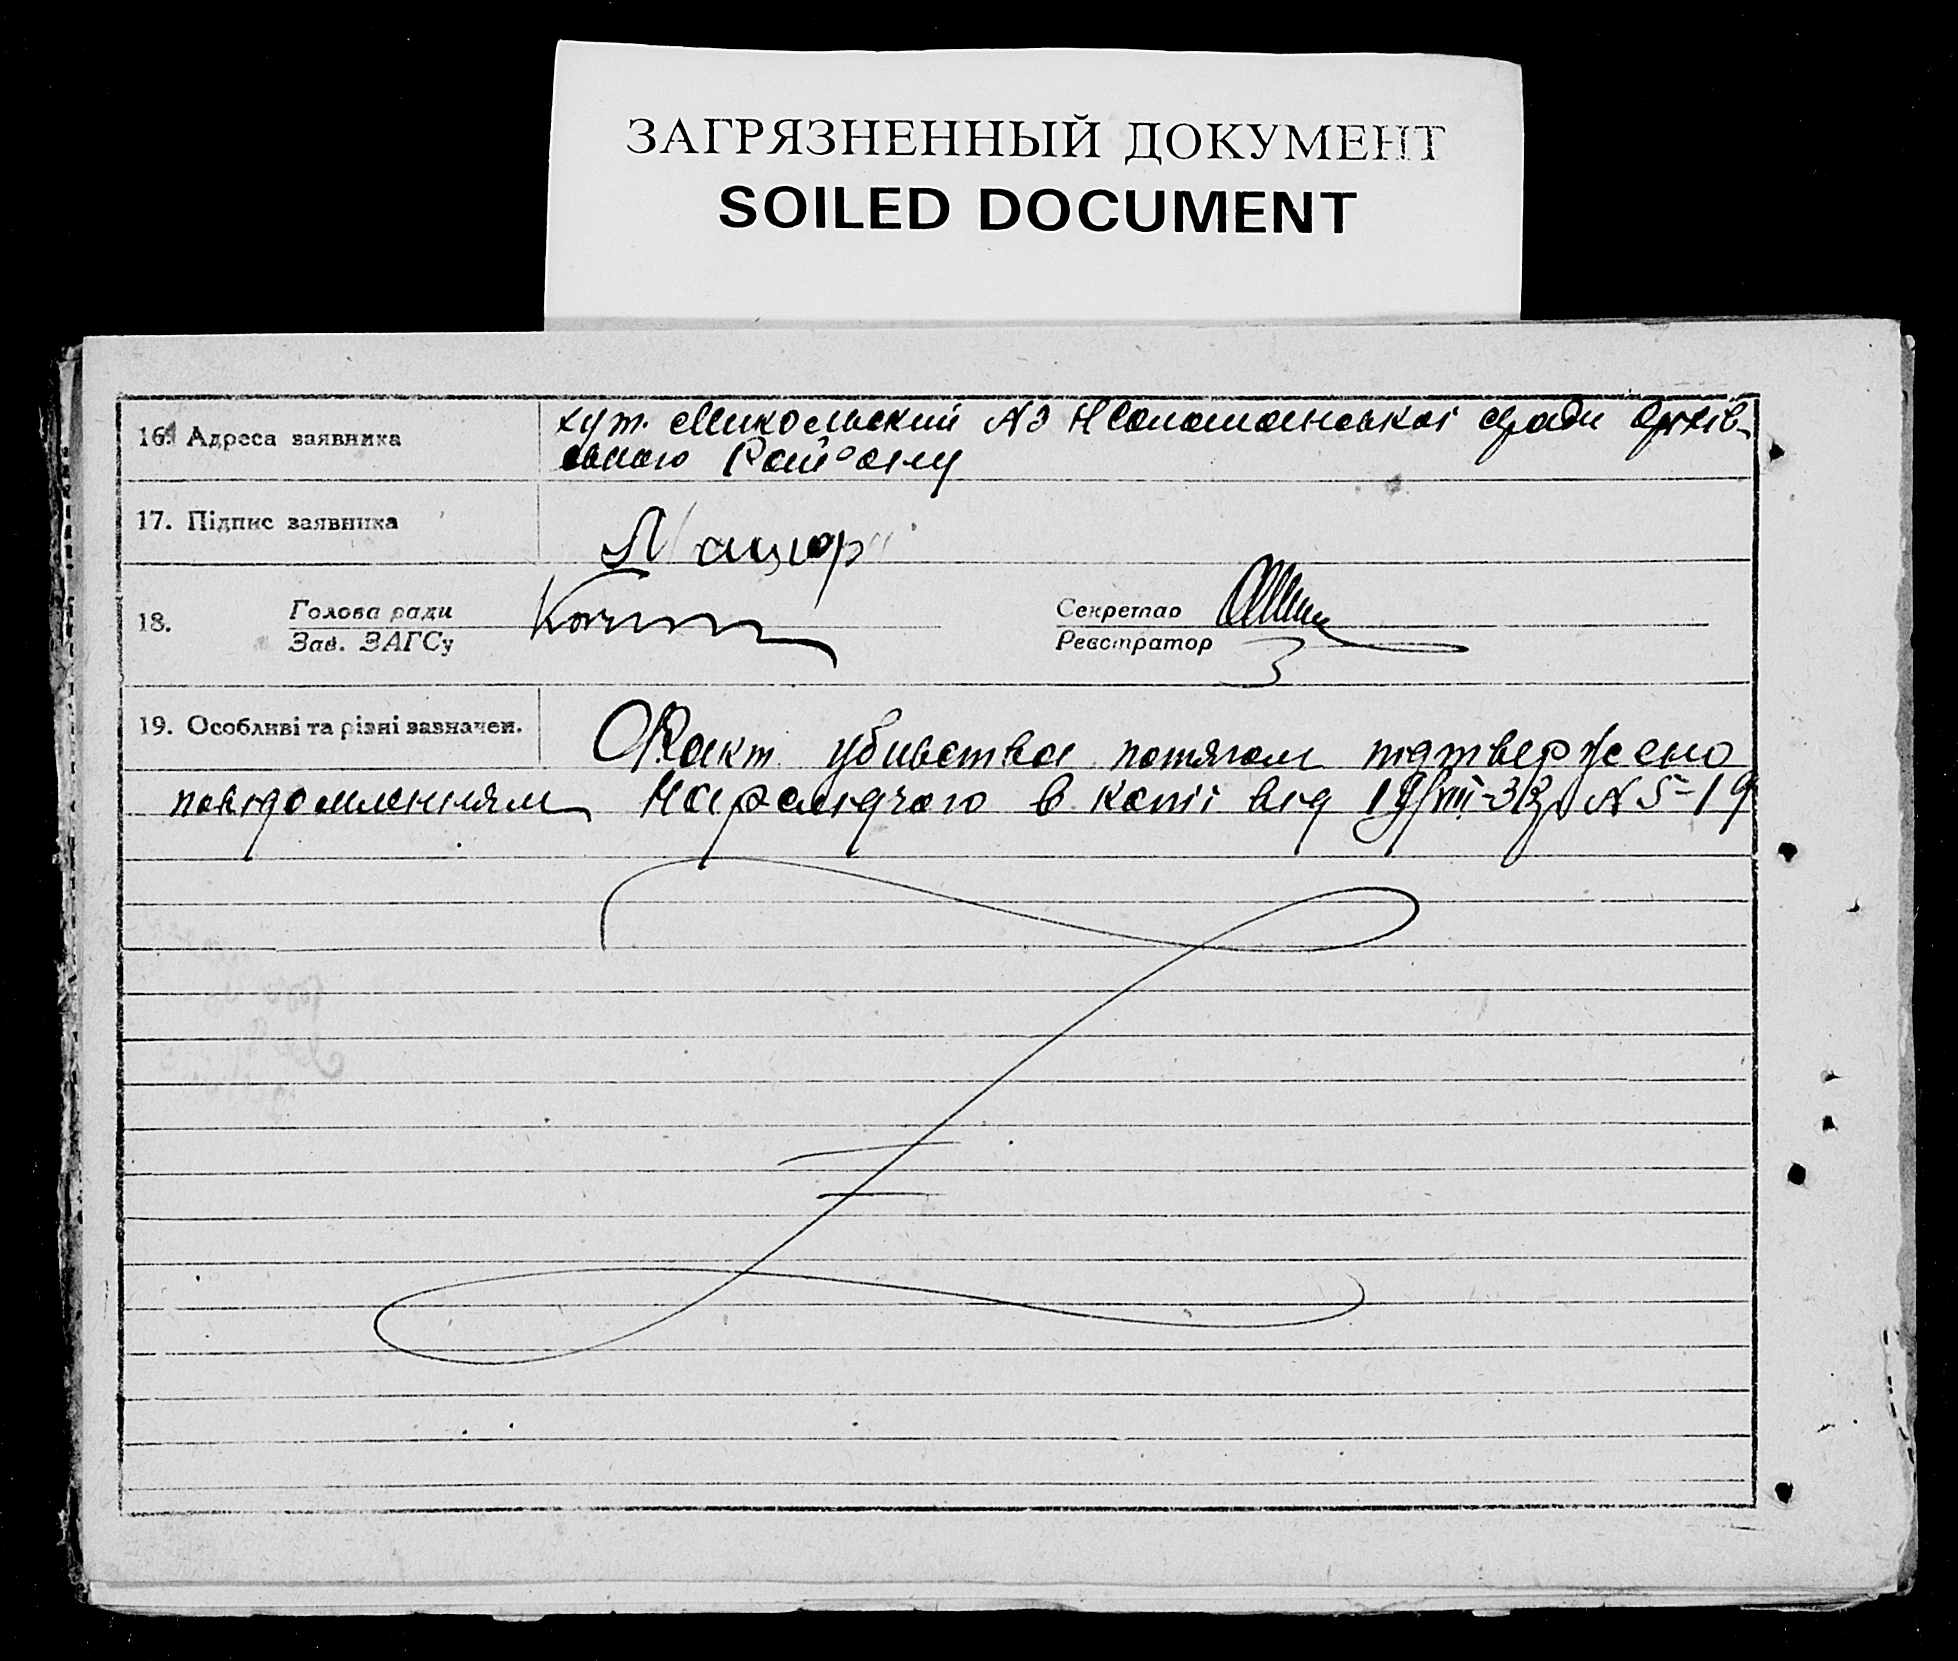 ЗАГРЯЗНЕННЫЙ ДОКУМЕНТ
SOILED DOCUMENT
16. Адреса заявника
хут. Микольский №3 ради
Району
17. Підпис заявника
18. Голова ради
Зав. ЗАГСу
Секретар
Реєстратор
19. Особливі та різні зазначен.
Факт убивства потягом підтверджено
повідомленням в копії від №5-19